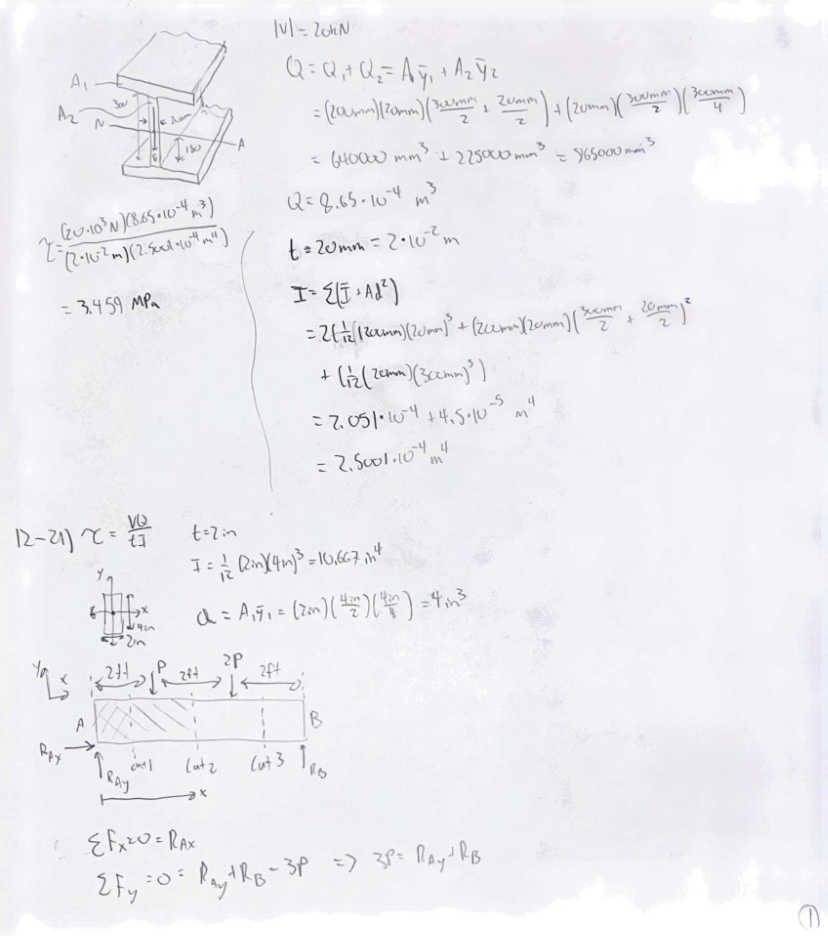 |V| = 20kN
A₁
A₂
300
20mm
N
150
A
Q = Q₁ + Q₂ = A₁ȳ₁ + A₂ȳ₂
= (200mm)(20mm)(300mm/2 + 20mm/2) + (20mm)(300mm/2)(300mm/4)
= 640000 mm³ + 225000 mm³ = 865000 mm³
Q = 8.65·10⁻⁴ m³
t = 20mm = 2·10⁻² m
I = Σ(Ī + Ad²)
= 2(1/12(200mm)(20mm)³ + (200mm)(20mm)(300mm/2 + 20mm/2)²
+ (1/12(20mm)(300mm)³)
= 2.051·10⁻⁴ + 4.5·10⁻⁵ m⁴
= 2.5001·10⁻⁴ m⁴
τ = (20·10³N)(8.65·10⁻⁴m³)/(2·10⁻²m)(2.5001·10⁻⁴m⁴)
= 3.459 MPa
12-21) τ = VQ/tI
t = 2in
I = 1/12 (2in)(4in)³ = 10.667 in⁴
Q = A₁ȳ₁ = (2in)(4in/2)(4in/4) = 4in³
Y
X
4in
2in
Y
X
2ft
P
2ft
2P
2ft
A
B
R_Ax
R_Ay
cut 1
Cut 2
Cut 3
R_B
x
ΣFx=0 = R_Ax
ΣFy = 0 = R_Ay + R_B - 3P => 3P = R_Ay + R_B
1